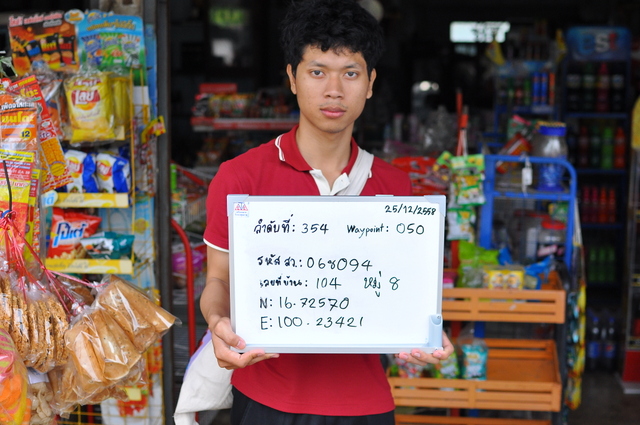 25/12/2558
ลำดับที่: 354 Waypoint: 050
รหัส สา.: 068094
เลขที่บ้าน: 104 หมู่ 8
N: 16.72570
E: 100.23421